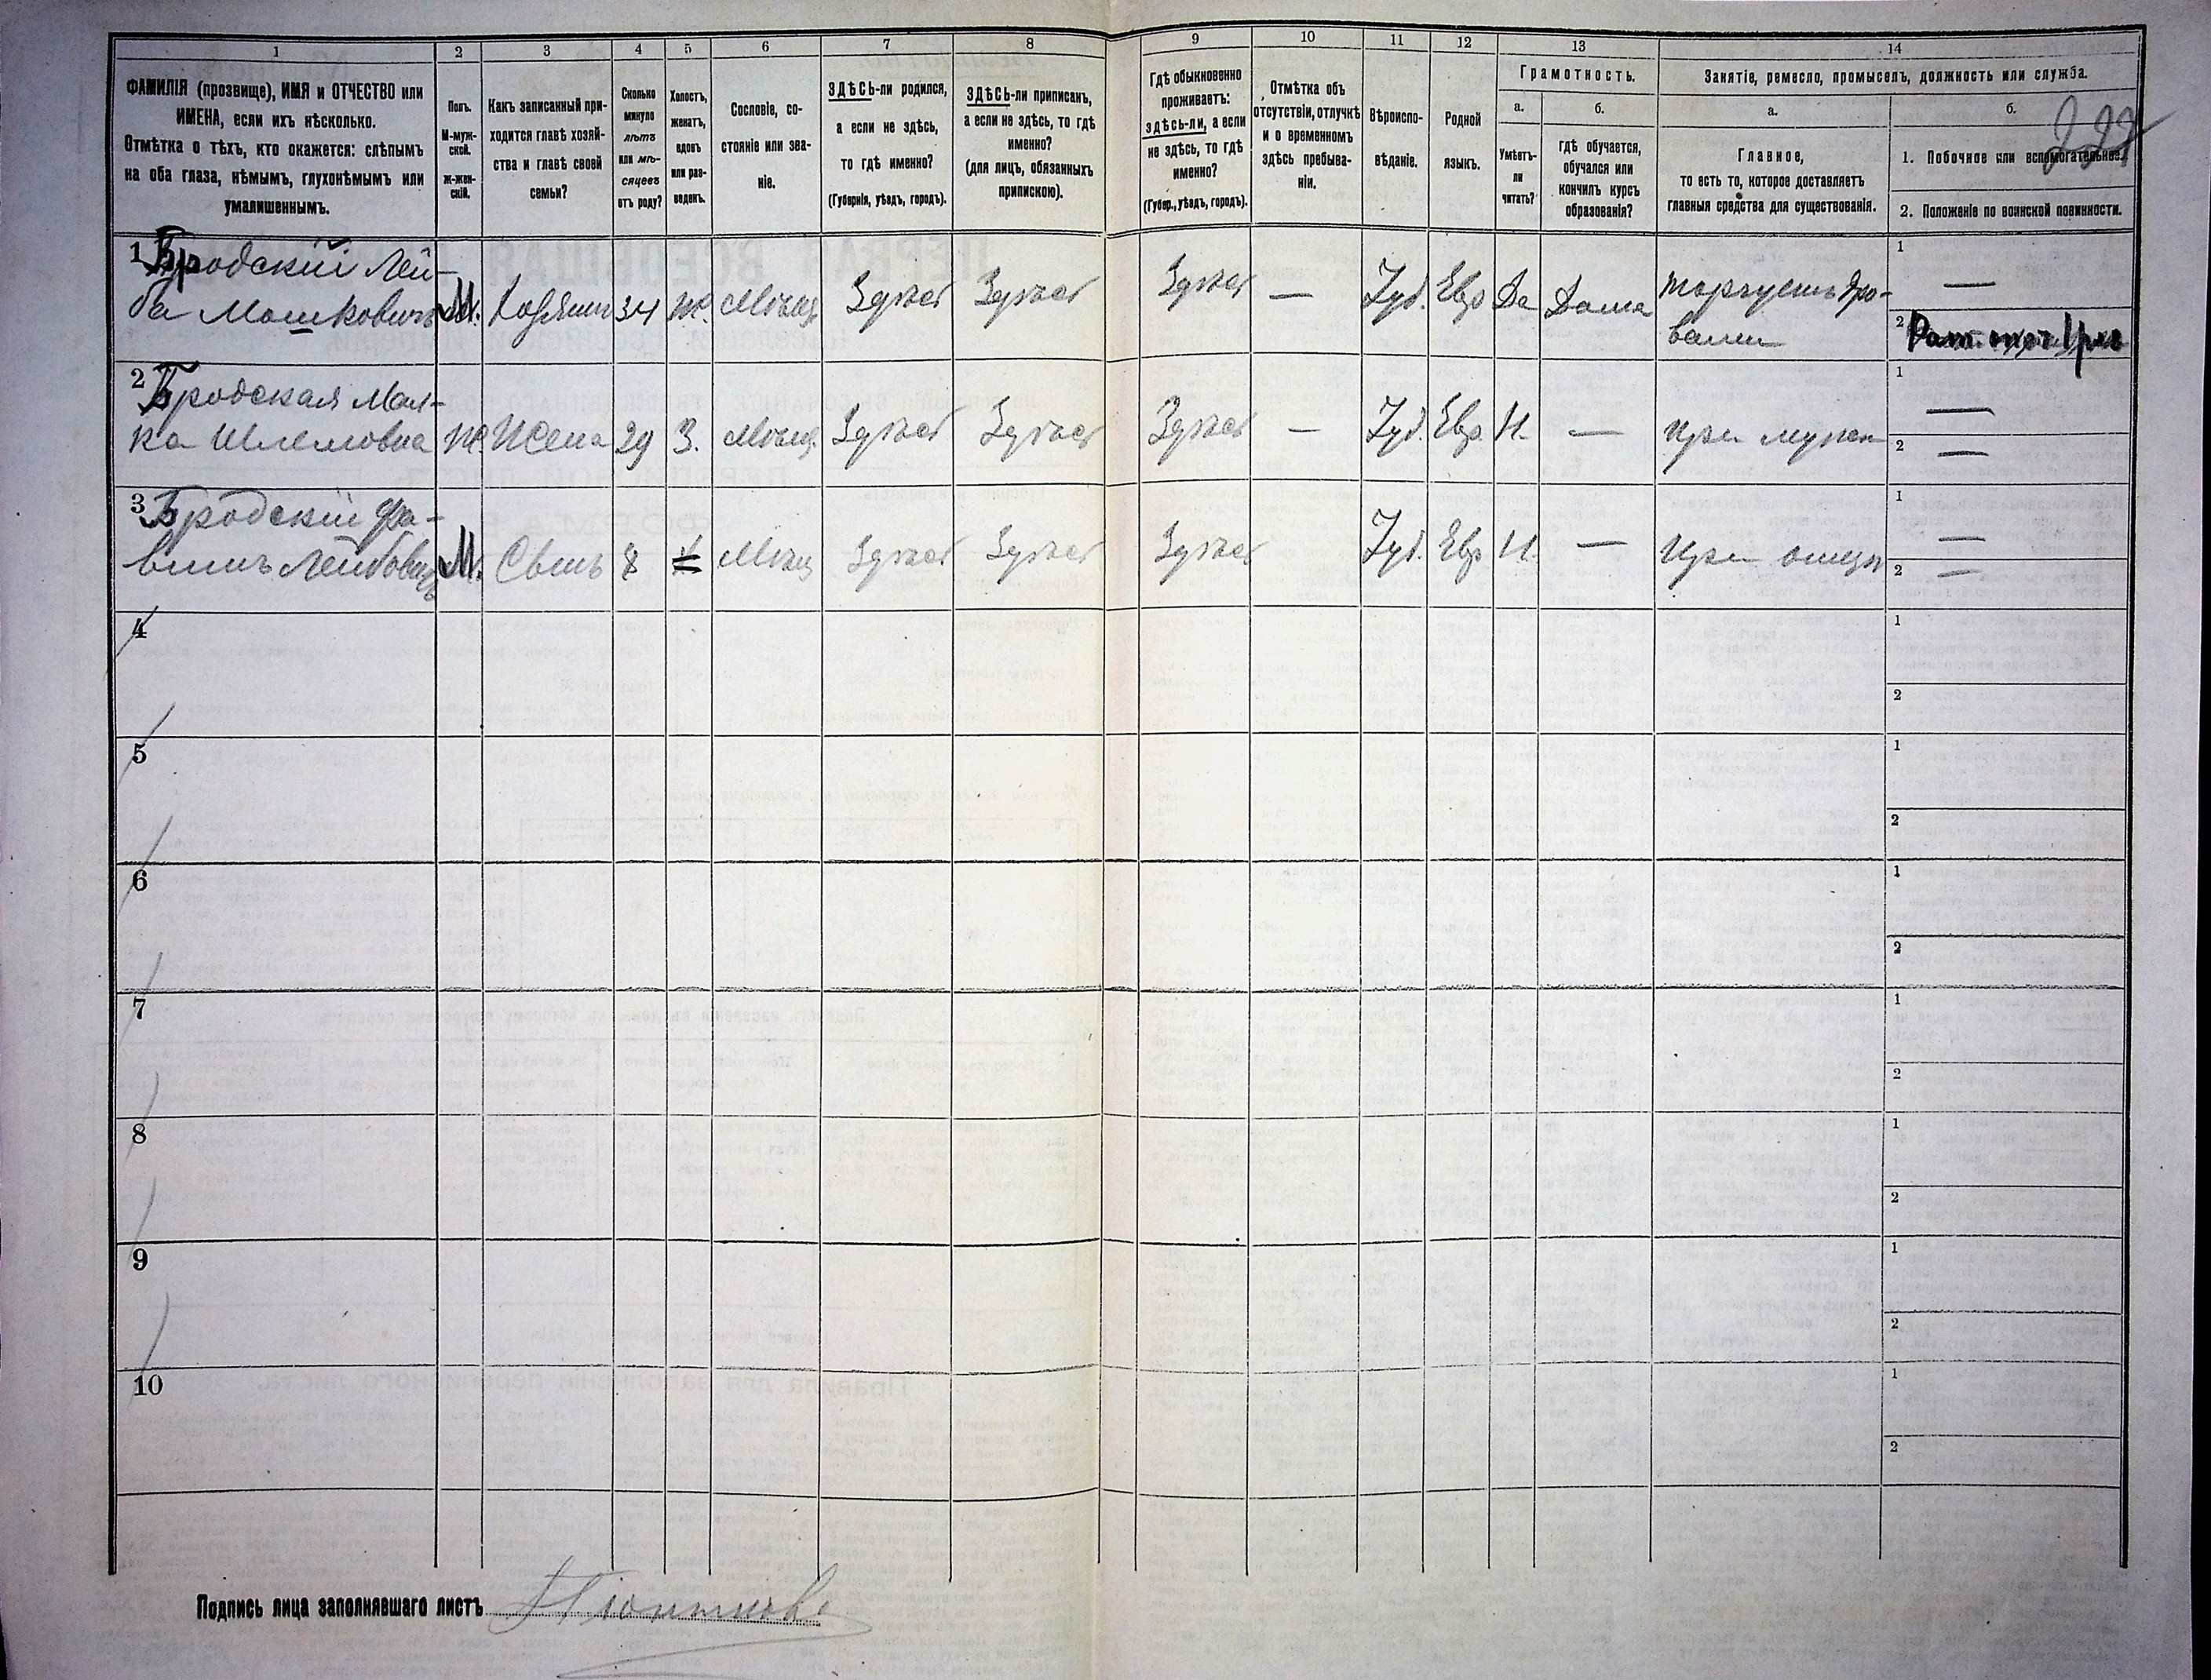 1
2
3
4
5
6
7
8
9
10
11
12
13
14
ФАМИЛІЯ (прозвище), ИМЯ и ОТЧЕСТВО или
ИМЕНА, если ихъ нѣсколько.
Отмѣтка о тѣхъ, кто окажется: слѣпымъ
на оба глаза, нѣмымъ, глухонѣмымъ или
умалишеннымъ.
Полъ.
М-муж-
ской.
ж-жен-
скій.
Какъ записанный при-
ходится главѣ хозяй-
ства и главѣ своей
семьи?
Сколько
минуло
лѣтъ
или мѣ-
сяцевъ
отъ роду?
Холостъ,
женатъ,
вдовъ
или раз-
веденъ.
Сословіе, со-
стояніе или зва-
ніе.
ЗДѢСЬ-ли родился,
а если не здѣсь,
то гдѣ именно?
(Губернія, уѣздъ, городъ).
ЗДѢСЬ-ли приписан,
а если не здѣсь, то гдѣ
именно?
(для лицъ, обязанных
припискою).
Гдѣ обыкновенно
проживаетъ:
здѣсь-ли, а если
не здѣсь, то гдѣ
именно?
(Губер., уѣздъ, городъ).
Отмѣтка объ
отсутствіи, отлучкѣ
и о временномъ
здѣсь пребыва-
ніи.
Вѣроиспо-
вѣданіе.
Родной
языкъ.
Грамотность.
а.
Умѣетъ-
ли
читать?
б.
гдѣ обучается,
обучался или
кончилъ курсъ
образованія?
Занятіе, ремесло, промыселъ, должность или служба.
а.
Главное,
то есть то, которое доставляетъ
главныя средства для существованія.
б.
1. Побочное или вспомогательное.
2. Положеніе по воинской повинности.
1 Бродскій Лей-
ба Мошковичъ М. Хозяинъ 34 Ж. Мѣщ. Здѣсь Здѣсь Здѣсь — Іуд. Евр Да Дома торгуетъ дро-
вами
1 —
2
2 Бродская Мал-
ка Шлемовна Ж. Жена 29 З. Мѣщ. Здѣсь Здѣсь Здѣсь — Іуд. Евр. Н. — При мужѣ
1 —
2 —
3 Бродскій
Лейбовичъ М. Сынъ 8 Мѣщ Здѣсь Здѣсь Здѣсь Іуд. Евр Н. — При отцѣ
1 —
2 —
4
1
2
5
1
2
6
1
2
7
1
2
8
1
2
9
1
2
10
1
2
Подпись лица заполнявшаго листъ